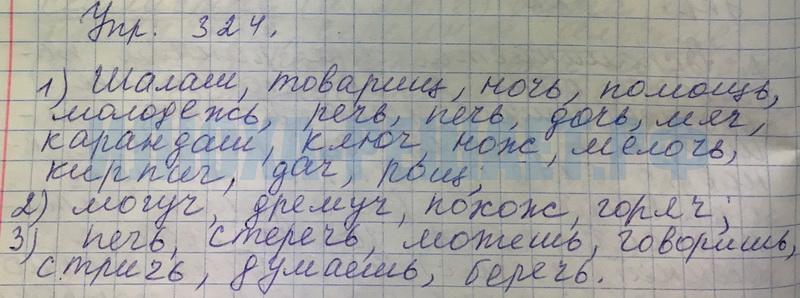 Упр. 324.
1) Шалаш, товарищ, ночь, помощь,
молодёжь, речь, печь, дочь, мяч,
карандаш, ключ, нож, мелочь,
кирпич, дач, рощ,
2) могуч, дремуч, похож, горяч;
3) печь, стеречь, можешь, говоришь,
стричь, думаешь, беречь.